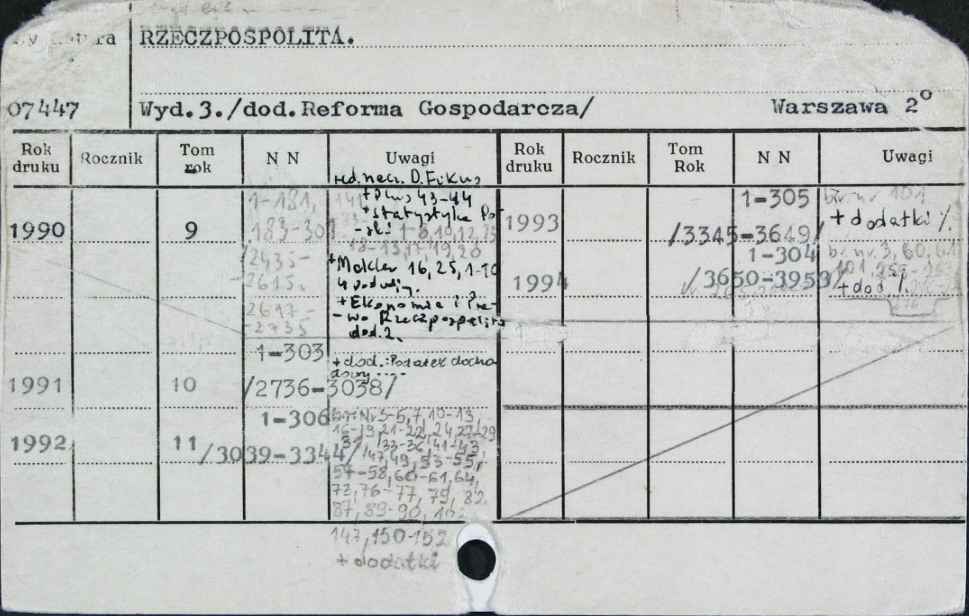 RZECZPOSPOLITA.
07447
Wyd.3./dod.Reforma Gospodarcza/ Warszawa 2°
Rok druku Rocznik Tom rok N N Uwagi Rok druku Rocznik Tom Rok N N Uwagi
red. nacz. D. Fikus
1990 9 1-181,
183-301
2435-
2615.
2617-
-2735
+ Plus 43-44
+ Statystyka Pol-
-ski
+Makler 16, 25, 1-10
+ Ekonomia i Pra-
-wo Rzeczpospolita
dod. 2.
1-303
1991 10 /2736-3038/
+ dod.: Podatek docho
dowy
1-306
1992 11 /3039-3344/
br. nr 3-5, 7, 10-13,
16-19, 21-22, 24, 27-29
31, 33-36, 41-43,
47, 49, 53-55,
57-58, 60-61, 64,
72, 76-77, 79, 82
87, 89-90, 102
147, 150-152
+ dodatki
1-305 br. nr 101
1993 /3345-3649/ + dodatki
1-304 br. nr 3, 60, 61
1994 /3650-3953/
+ dod.